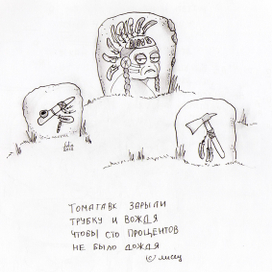 ТОМАГАВК ЗАРЫЛИ
ТРУБКУ И ВОЖДЯ
ЧТОБЫ СТО ПРОЦЕНТОВ
НЕ БЫЛО ДОЖДЯ
(с) лисец